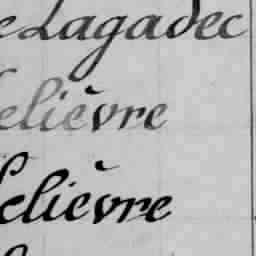 eLagadec
Lelièvre
Lelièvre